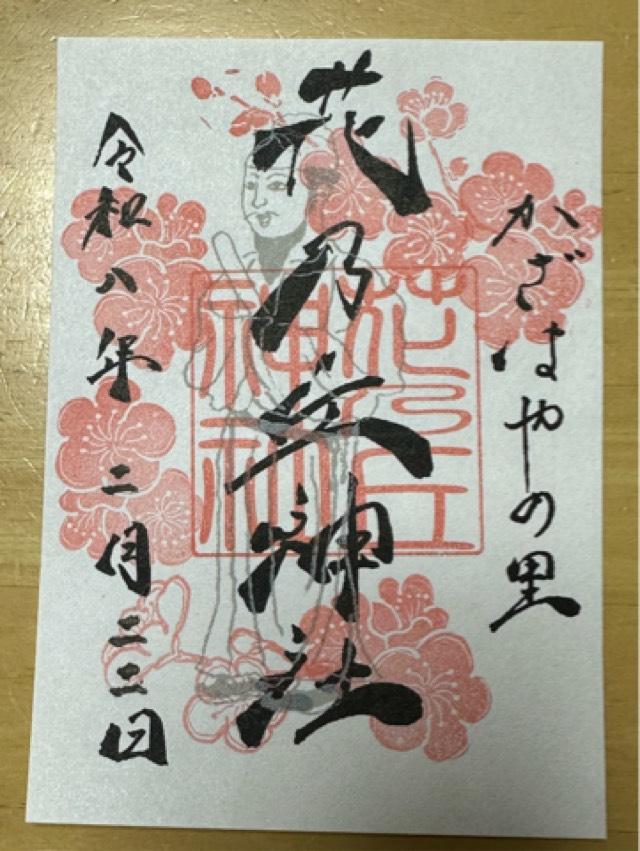 かざはやの里
花乃丘神社
令和八年二月二二日
花乃丘
神社